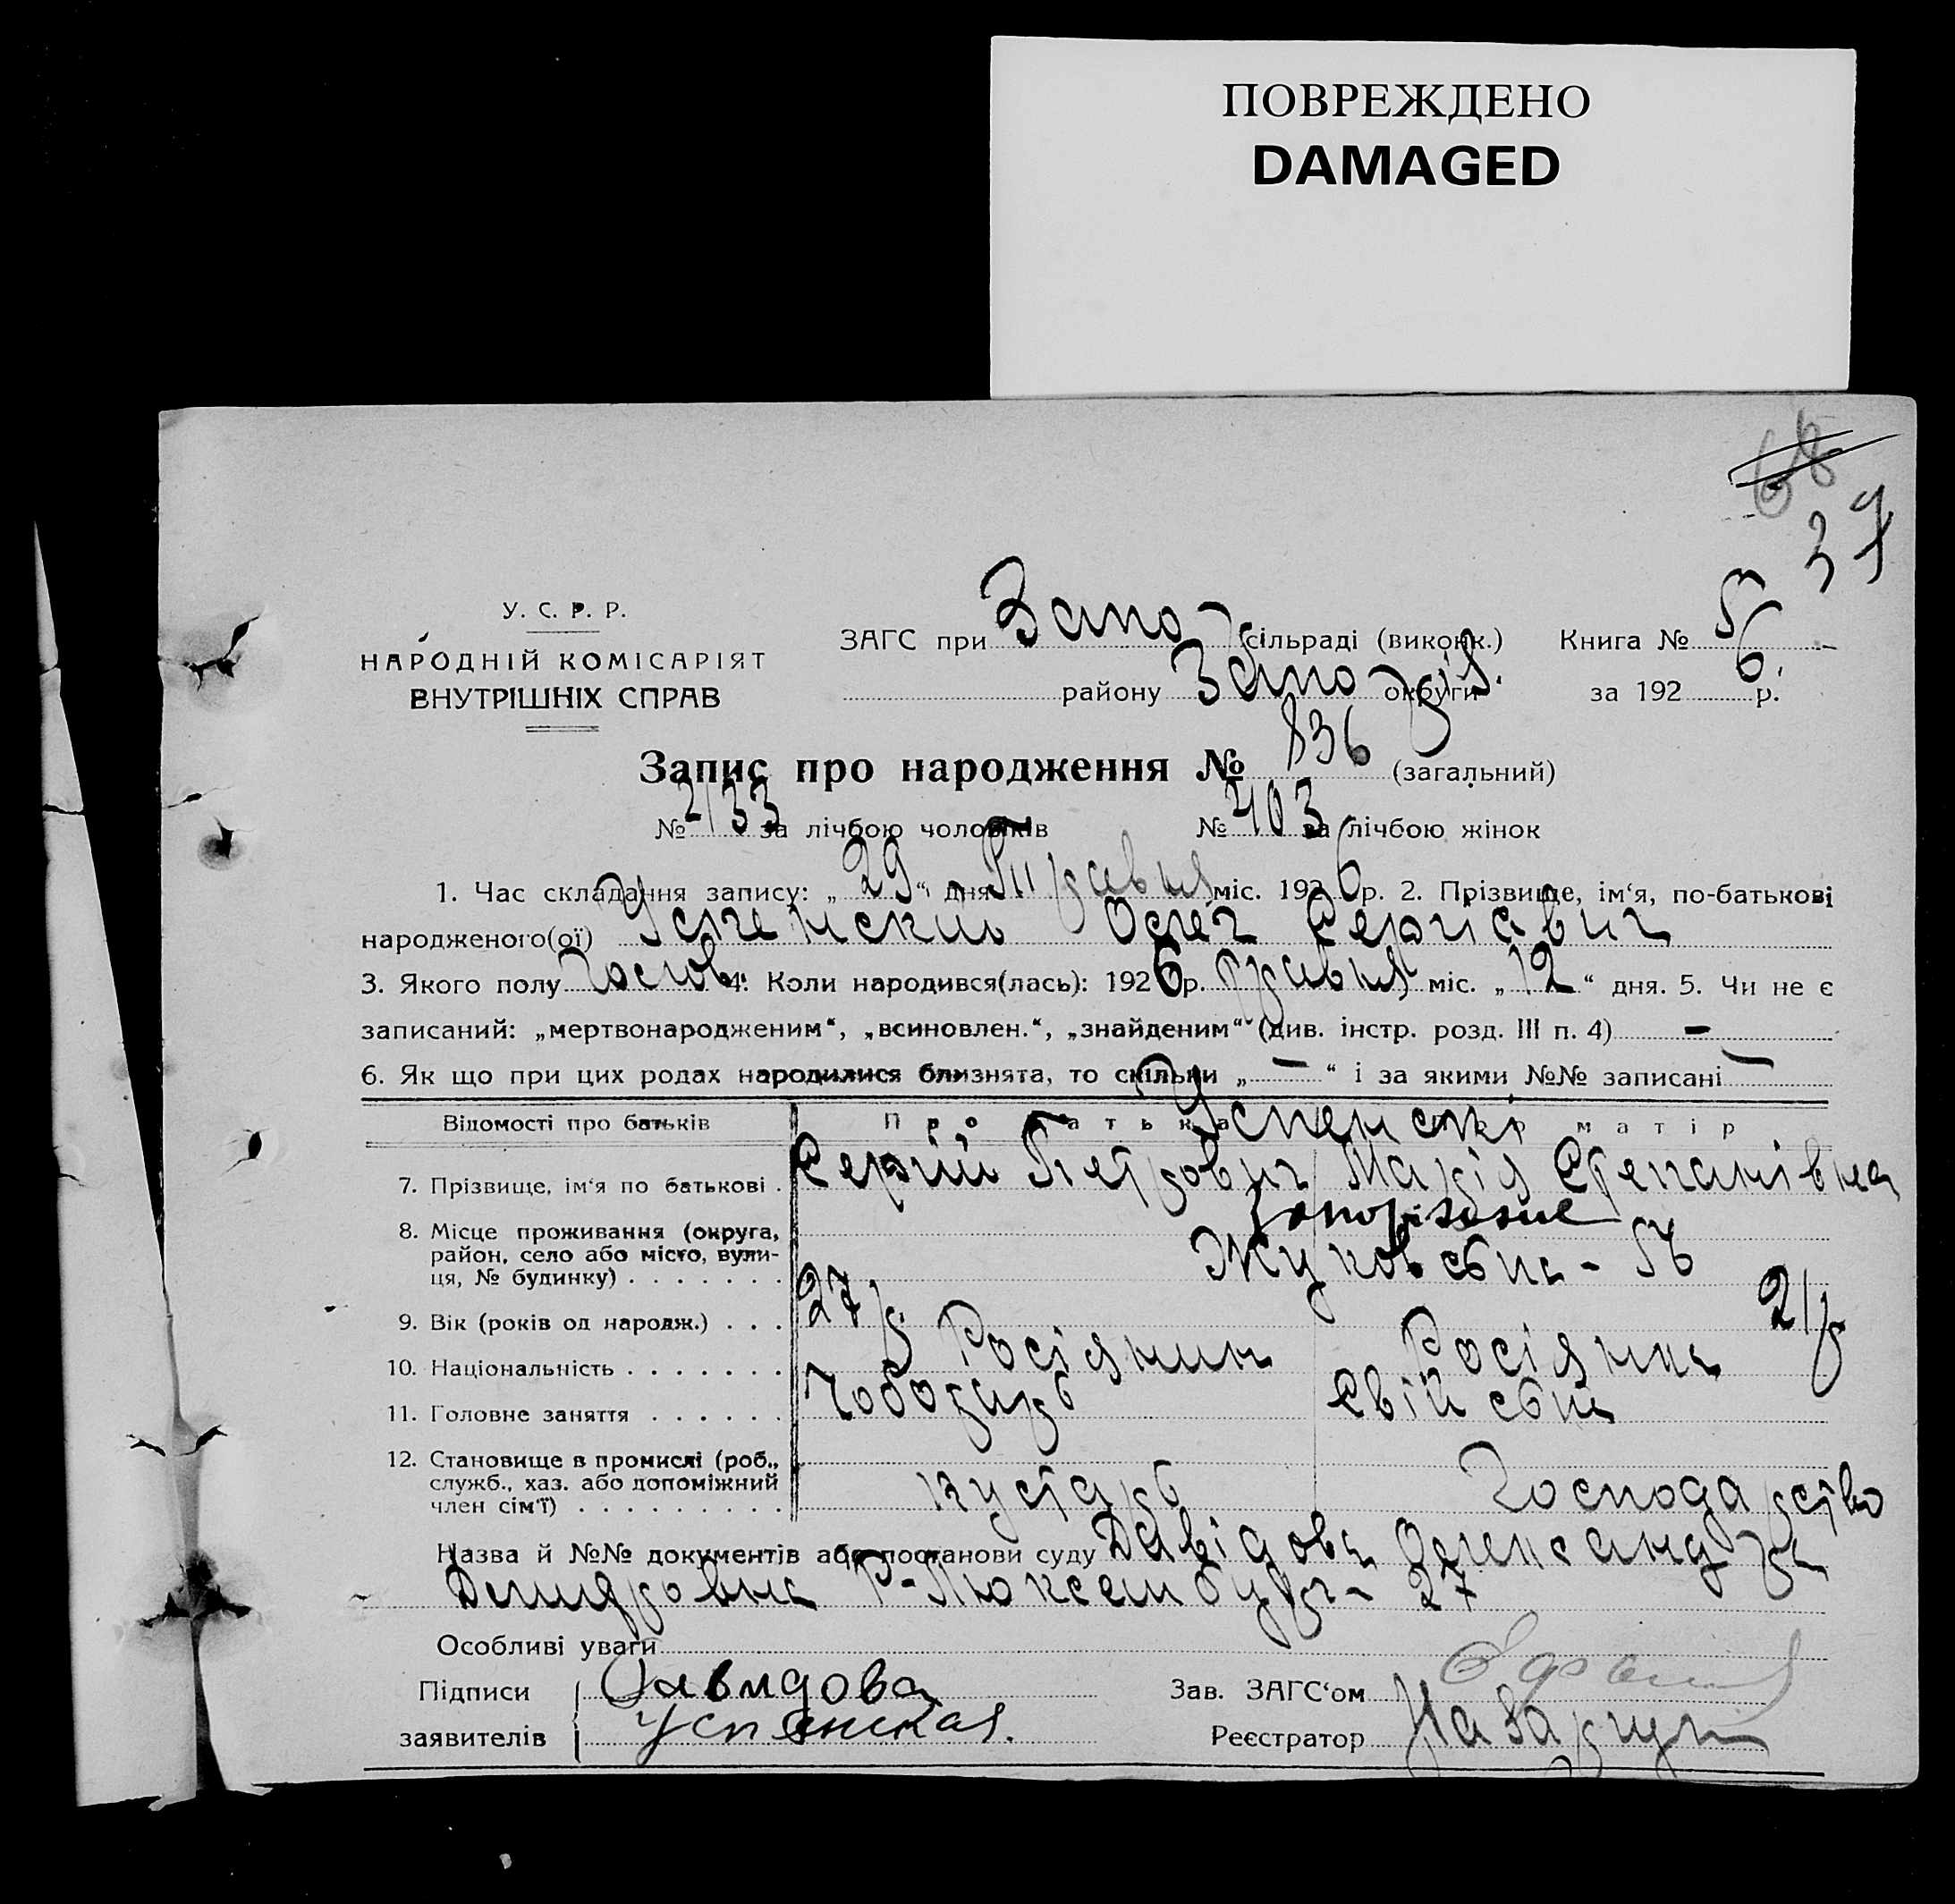 ПОВРЕЖДЕНО
DAMAGED
68
37
У. С. Р. Р.
НАРОДНІЙ КОМІСАРІЯТ
ВНУТРІШНІХ СПРАВ
ЗАГС при Запо сільраді (виконк.) Книга № 5
району Запо округи за 192 6 р.
Запис про народження № 836 (загальний)
№ 433 за лічбою чоловіків № 403 за лічбою жінок
1. Час складання запису: „ 29 “ дня Травня міс. 192 6 р. 2. Прізвище, ім‘я, по-батькові
народженого(ої) Успенский Олег Сергієвич
3. Якого полу Чолов. 4. Коли народився(лась): 192 6 р. Травня міс. „ 12 “ дня. 5. Чи не є
записаний: „мертвонародженим“, „всиновлен.“, „знайденим“ (див. інстр. розд. III п. 4) -
6. Як що при цих родах народилися близнята, то скільки „ — “ і за якими №№ записані —
Відомості про батьків Про батька Про матір
Успенскі
7. Прізвище, ім‘я по батькові . Сергій Петрович Марія Степанівна
8. Місце проживання (округа, Запоріжжє
район, село або місто, вули- Жуковська - 56
ця, № будинку) . . . . . . .
9. Вік (років од народж.) . . . 27 р. 21 р
10. Національність . . . . . . . Росіянин Росіянка
11. Головне заняття . . . . . . Чоботарь Свійська
12. Становище в промислі (роб.,
служб., хаз. або допоміжний кустарь Господарство
член сім‘ї) . . . . . . . . .
Назва й №№ документів або постанови суду Давідова Олександра
Р-Люксембург- 27
Особливі уваги
Підписи Давидова Зав. ЗАГС‘ом
заявителів Успенская. Реєстратор